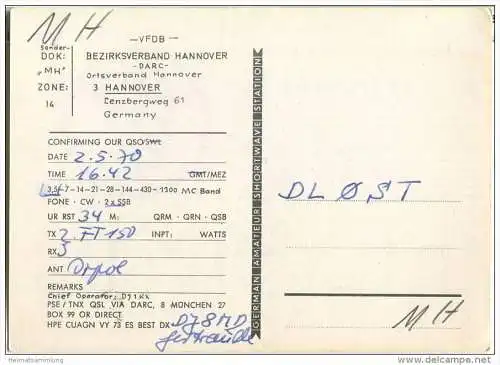 MH
—VFDB—
Sonder-
DOK:
BEZIRKSVERBAND HANNOVER
-DARC-
"MH"
Ortsverband Hannover
ZONE:
3 HANNOVER
14
Lenzbergweg 61
Germany
CONFIRMING OUR QSO/SWL
DATE 2.5.70
TIME 16.42 GMT/MEZ
3,5-7-14-21-28-144-430-1300 MC Band
FONE · CW · 2xSSB
UR RST 34 M: QRM · QRN · QSB
TX 2. FT 150 INPT: WATTS
RX 5
ANT Dipol
REMARKS
Chief Operator: DJ1XX
PSE/TNX QSL VIA DARC, 8 MÜNCHEN 27
BOX 99 OR DIRECT
HPE CUAGN VY 73 ES BEST DX DJ8MD
Gertraude
GERMAN AMATEUR SHORTWAVE STATION
DLØST
MH
Heimatsammlung
www.ansichtskartenversand.com